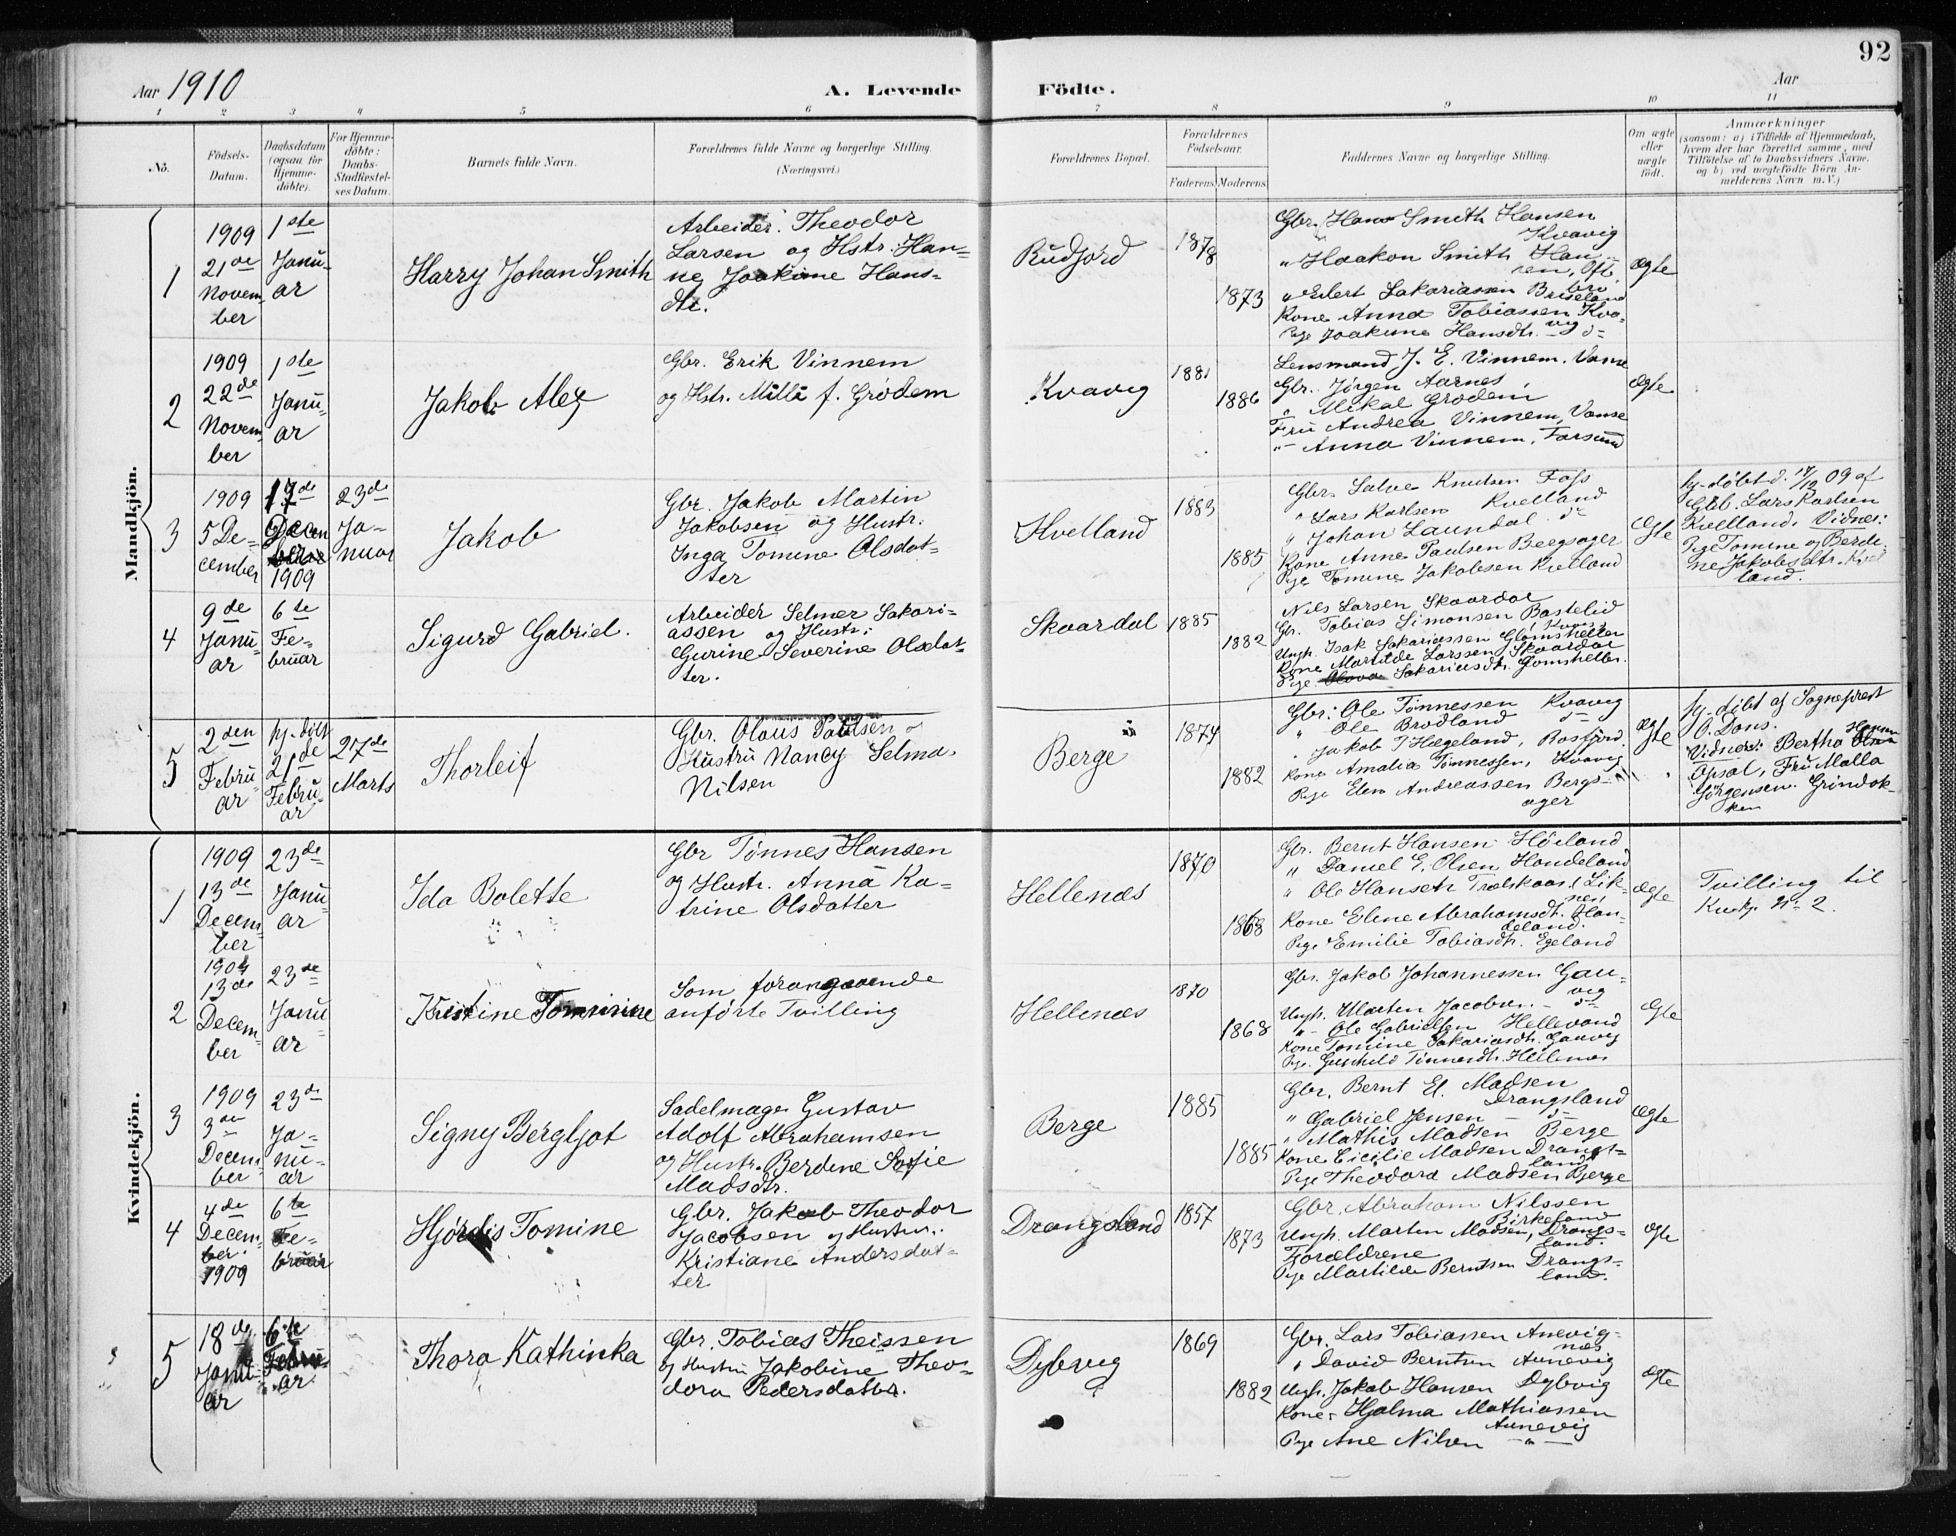 92
Aar 1910
A. Levende
Födte.
Aar
1 2 3 4 5 6 7 8 9 10 11
No.
Födsels-
Datum.
Daabsdatum
(ogsaa for
Hjemme-
döbte).
For Hjemme-
döbte:
Daabs-
Stadfæstel-
ses Datum.
Barnets fulde Navn.
Forældrenes fulde Navne og borgerlige Stilling.
(Næringsvei.)
Forældrenes Bopæl.
Forældrenes
Födselsaar.
Faderens
Moderens
Faddernes Navne og borgerlige Stilling.
Om ægte
eller
uægte
födt.
Anmærkninger
(saasom: a) i Tilfælde af Hjemmedaab,
hvem der har forrettet samme, med
Tilföielse af to Daabsvidners Navne.
og b) ved uægtefödte Börn An-
melderens Navn m. V.)
Mandkjön.
1
1909
21de
Novem-
ber
1ste
Janu-
ar
Harry Johan Smith
Arbeider Theodor
Larsen og Hstr. Han-
ne Joakime Hans-
dtr.
Rudjord
1878
1873
Gbr. Hans Smith Hansen
Kvavig
" Haakon Smith Han-
sen,
" Eilert Sakariassen Briseland
Kone Anna Tobiassen Kva-
vig
Pige Joakime Hansdtr. d-
Ægte
2
1909
22de
Novem-
ber
1ste
Janu-
ar
Jakob Alex
Gbr. Erik Vinnem
og Hstr. Milli f. Grødem
Kvavig
1881
1886
Lensmand J. E. Vinnem, Vanse
Gbr. Jørgen Aarnes,
" Mikal Grødem,
Fru Andrea Vinnem, Vanse
"- Anna Vinnem, Farsund
Ægte
3
1909
5 De-
cember
17de
Decem
1909
23de
Ja-
nuar
Jakob
Gbr. Jakob Martin
Jakobsen og Hustr.
Inga Tomine Olsdat-
ter
Kvelland
1883
1885
Gbr. Salve Knudsen Foss
" Lars Karlsen Kvelland
" Johan Laundal d-
Kone Anne Paulsen Bergsager
Pige Tomine Jakobsen Kvelland
Ægte
hj-døbt d. 17/12 09 af
Gbr. Lars Karlsen
Kvelland. Vidner:
Pige Tomine og Berdi-
ne Jakobsdtr. Kvel
land.
4
9de
Janu-
ar
6te
Fe-
bruar
Sigurd Gabriel.
Arbeider Selmer Sakari-
assen og Hustr:
Gurine Severine Olsdat-
ter.
Skaardal
1885
1882
Nils Larsen Skaardal
Gr. Tobias Simonsen Bastelid
Ungk. Isak Sakariassen Glomsheller
Kone Martilde Larssen Skaardal
Pige Sakariasdtr. Glomsheller.
5
2den
Febru-
ar
hj-døbt
21de
Febru-
ar
27de
Marts
Thorleif
Gbr. Olaus Paulsen
Hustru Nancy Selma
Nilsen
Berge
1874
1882
Gbr. Ole Tønnessen Kvavig
" Ole Brødland d-
" Jakob T Hægeland, Rosfjord
Kone Amalia Tønnessen, Kvavig
Pige Elen Andreassen Bergs-
ager
Ægte
hj-døbt af Sogneprest
O. Dons.
Vidner: Bertha Hansen
Opsal, Fru Malla
Jørgensen. Grindok-
ken
Kvindekjön.
1
1909
13de
Decem-
ber
23de
Janu-
ar
Ida Bolette
Gbr Tønnes Hansen
og Hustr. Anna Ka-
trine Olsdatter
Hellenæs
1870
1868
Gbr. Bernt Hansen Høiland
" Daniel E. Olsen, Handeland
" Ole Hansen Trælskaar, Lik-
nes,
Kone Elene Abrahamsdtr. Han-
deland.
Pige Emilie Tobiasdtr. Egeland
Ægte
Tvilling til
Kvkj. Nr 2.
2
1909
13de
Decem-
ber
23de
Janu
ar
Kristine Tomine
Som foranstaaende
anførte Tvilling
Hellenæs
1870
1868
Gbr. Jakob Johannessen Gau-
vig
Ungk. Marten Jacobsen d-
"- Ole Gabrielsen Hellevand
Kone Tomine Sakariasdtr. Gauvig
Pige. Gunhild Tønnesdtr. Hellenæs
Ægte
3
1909
3die
Decem-
ber
23de
Ja-
nu-
ar
Signy Bergljot
Sadelmager Gustav
Adolf Abrahamsen
og Hustr. Berdine Sofie
Madsdtr.
Berge
1885
1885
Gbr. Bernt El. Madsen
Drangsland
" Gabriel Jensen - d-
" Mathis Madsen Berge
Kone Cicilie Madsen Drangs-
land
Pige Theodora Madsen Berge
Ægte
4
4de
Decem-
ber.
1909
6te
Fe-
bruar
Hjørdis Tomine
Gbr. Jakob Theodor
Jacobsen og Hustru.
Kristiane Andersdat-
ter
Drangsland
1857
1873
Gbr. Abraham Nilssen
Birkeland
Ungk. Marten Madsen, Drangs-
land.
Forældrene
Pige Martilde Berntsen Drangs-
land.
Ægte
5
18de
Janu-
ar
6te
Febru-
ar
Thora Kathinka
Gbr. Tobias Theissen
og Hustru Jakobine Theo-
dora Pedersdatter.
Dybvig
1869
1882
Gbr. Lars Tobiassen Anevig-
nes
" David Berntsen Aunevig
Ungk. Jakob Hansen Dybvig
Kone. Hjalma Mathiassen
Aunevig
Pige Ane Nilsen - " -
Ægte